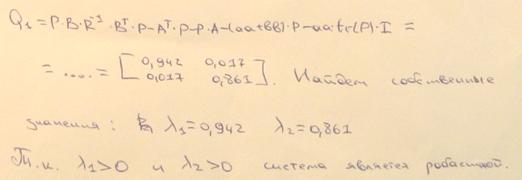 Q₁=P·B·R⁻¹·Bᵀ·P-Aᵀ·P-P·A-(aa+BB)·P-aa·tr(P)·I =
= ..... = [0,942 0,017
0,017 0,861]. Найдем собственные
значения: λ₁=0,942 λ₂=0,861
Т.к. λ₁>0 и λ₂>0 система является робастной.